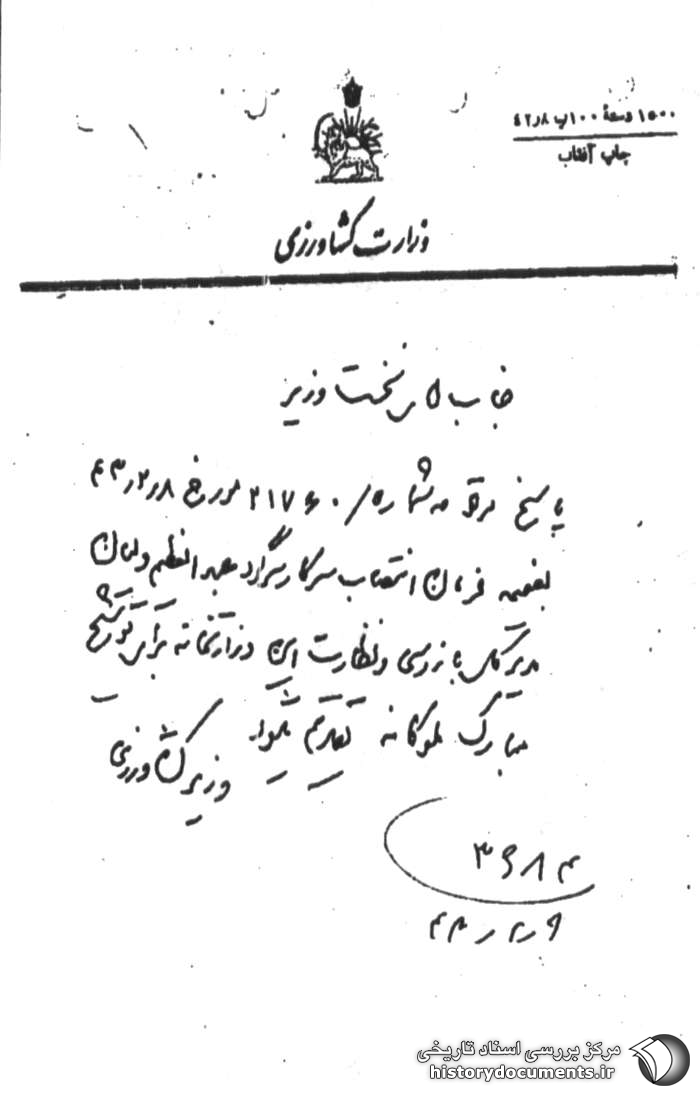 ۱۵۰۰ دستهٔ ۱۰۰ ب ۸ر۴۲
چاپ آفتاب
وزارت کشاورزی
جناب آقای نخست وزیر
پاسخ مرقومه شماره/۲۱۷۶۰ مورخ ۸ر۲ر۴۳
بضمیمه فرمان انتصاب سرکار سرگرد عبدالعظیم ولیان
مدیرکل بازرسی و نظارت این وزارتخانه برای توشیح
مبارک ملوکانه تقدیم میشود.
وزیر کشاورزی
۳۶۸۴
۹ر۲ر۴۳
مرکز بررسی اسناد تاریخی
historydocuments.ir